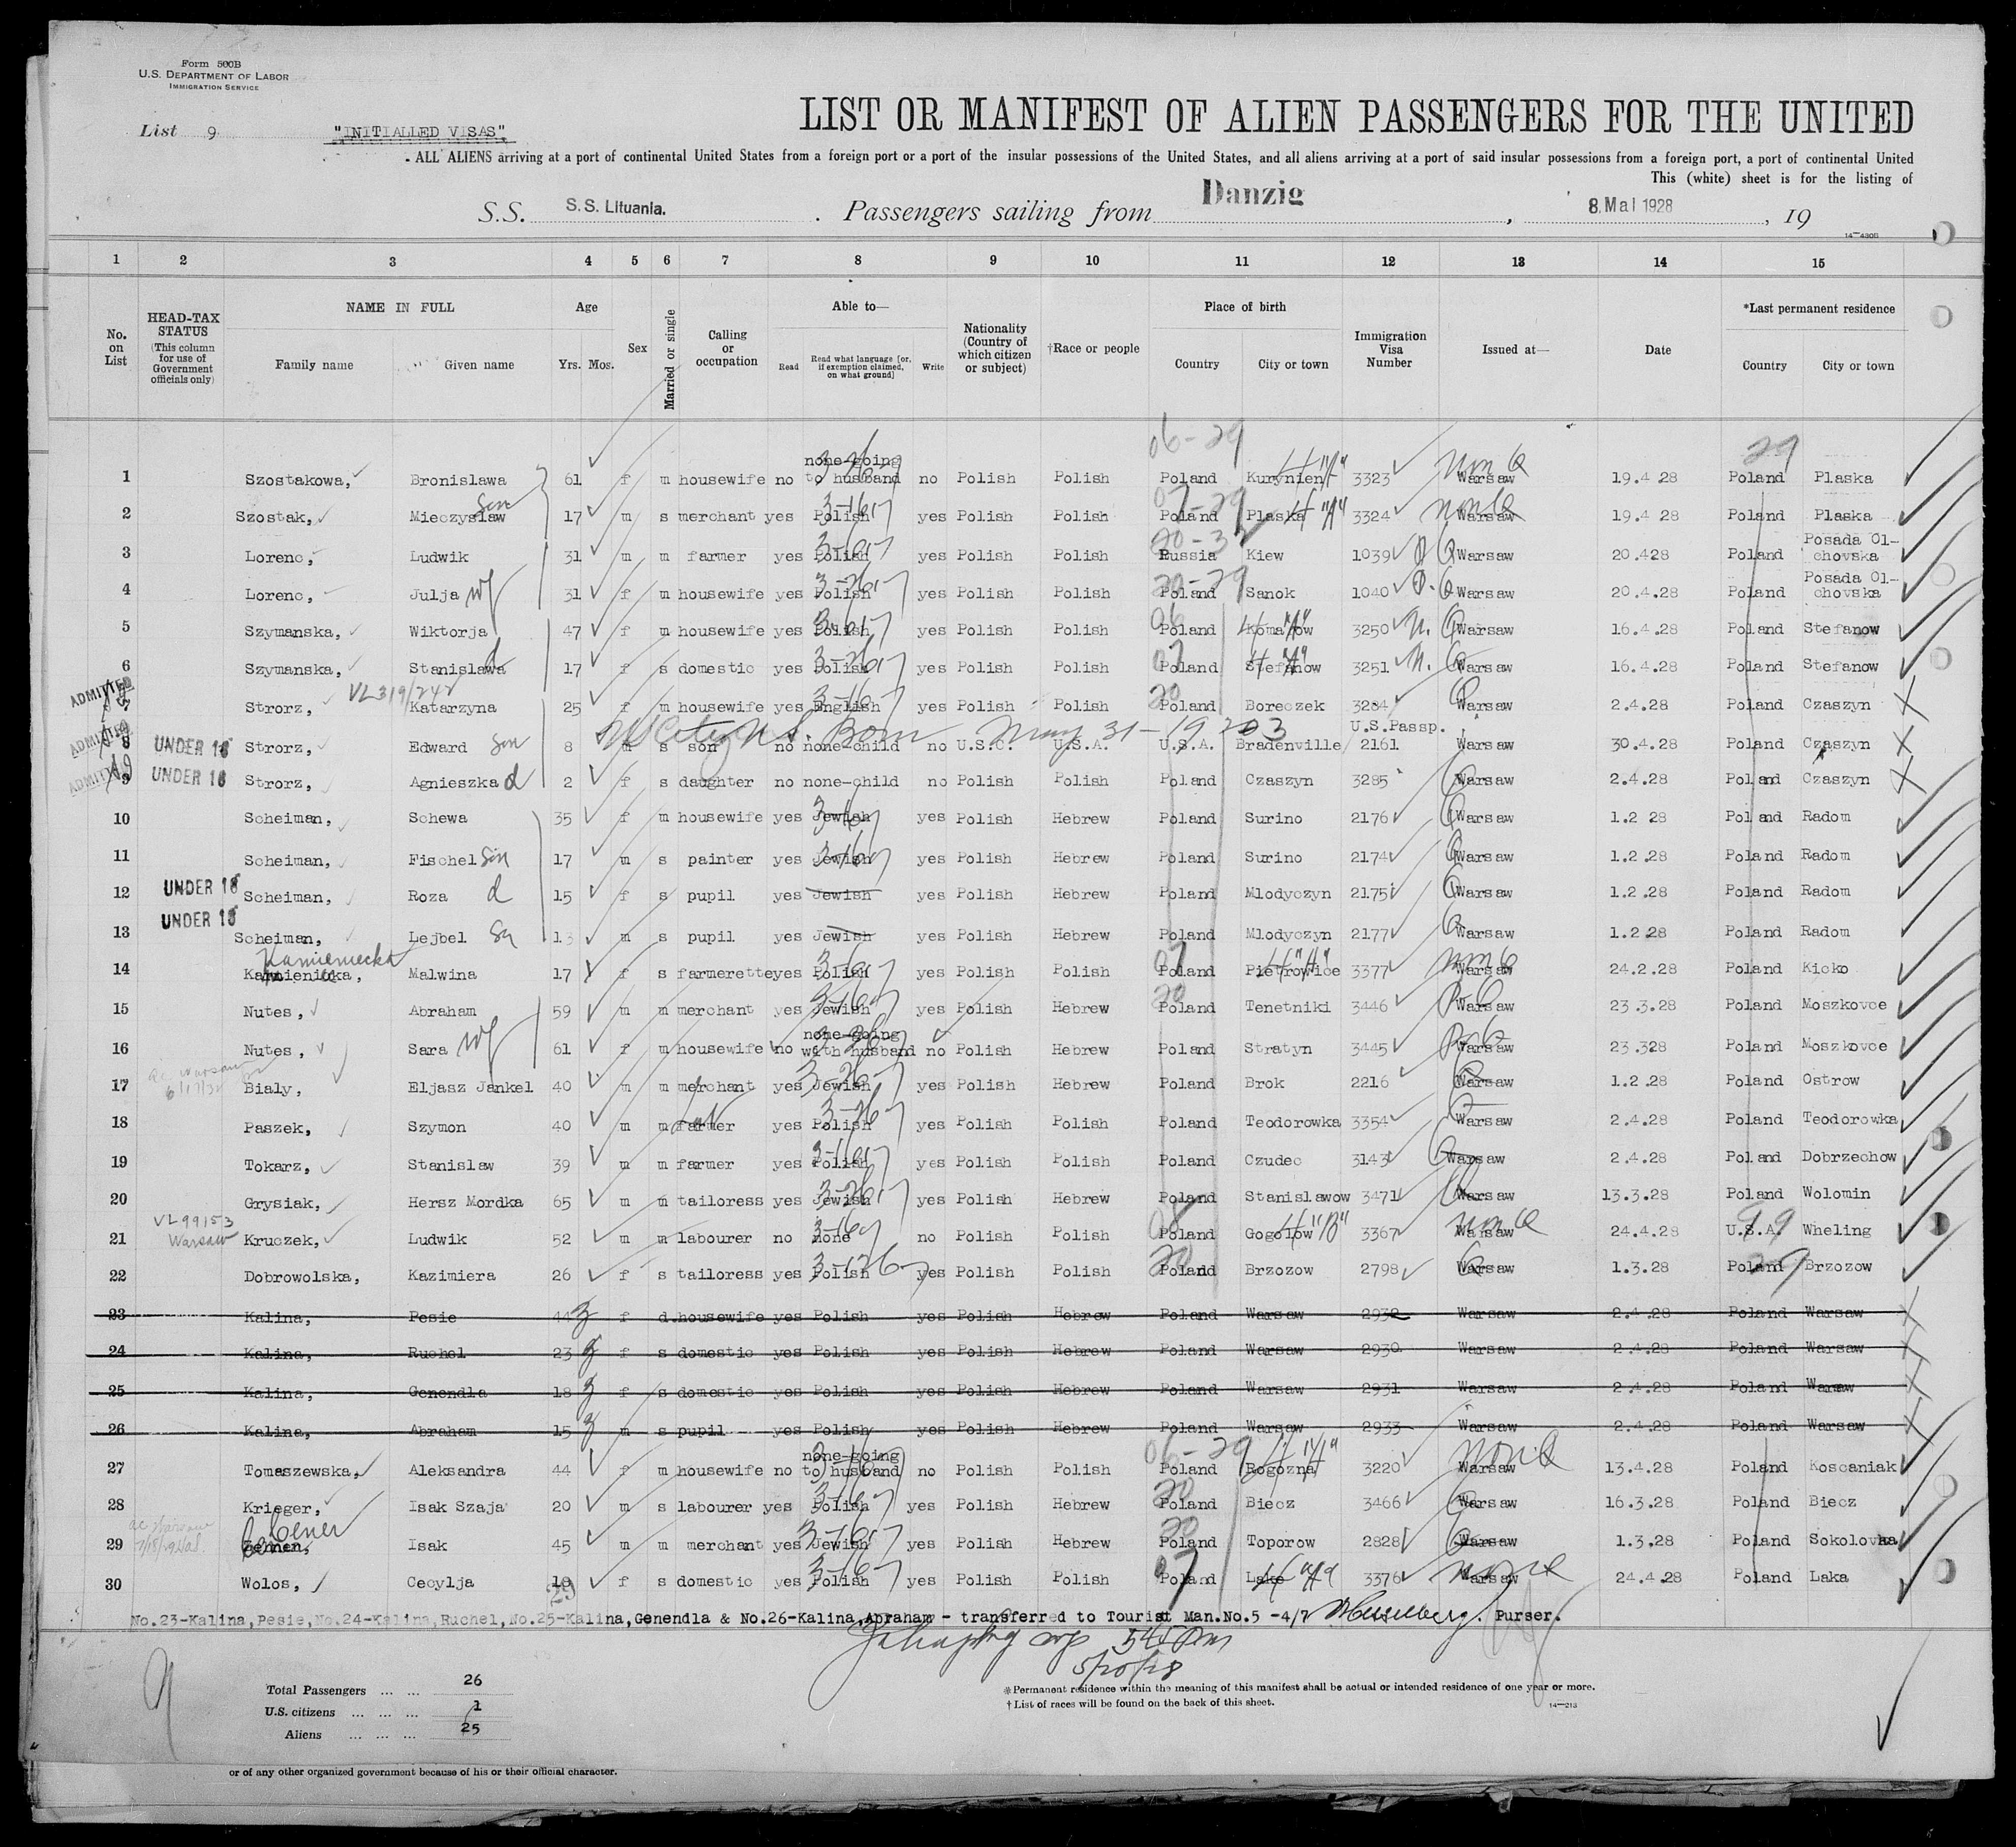 Form 500B
U.S. DEPARTMENT OF LABOR
IMMIGRATION SERVICE
List 9
"INITIALLED VISAS"
LIST OR MANIFEST OF ALIEN PASSENGERS FOR THE UNITED
ALL ALIENS arriving at a port of continental United States from a foreign port or a port of the insular possessions of the United States, and all aliens arriving at a port of said insular possessions from a foreign port, a port of continental United
This (white) sheet is for the listing of
S.S. S.S. Lituania. Passengers sailing from Danzig, 8. Mai 1928, 19
14—430B
1 2 3 4 5 6 7 8 9 10 11 12 13 14 15
No. on List
HEAD-TAX STATUS (This column for use of Government officials only)
NAME IN FULL
Family name Given name
Age
Yrs. Mos.
Sex
Married or single
Calling or occupation
Able to—
Read Read what language [or, if exemption claimed, on what ground] Write
Nationality (Country of which citizen or subject)
†Race or people
Place of birth
Country City or town
Immigration Visa Number
Issued at—
Date
*Last permanent residence
Country City or town
06-29 29
1 Szostakowa, Bronislawa 61 f m housewife no none-going to husband no Polish Polish Poland Kurynien 3323 Warsaw 19.4.28 Poland Plaska
2 Szostak, Mieczyslaw Son 17 m s merchant yes Polish yes Polish Polish Poland Plaska 3324 Warsaw 19.4 28 Poland Plaska
3 Lorenc, Ludwik 31 m m farmer yes Polish yes Polish Polish Russia Kiew 1039 Warsaw 20.428 Poland Posada Ol-chovska
4 Lorenc, Julja wf 31 f m housewife yes Polish yes Polish Polish Poland Sanok 1040 Warsaw 20.4.28 Poland Posada Ol-chovska
5 Szymanska, Wiktorja 47 f m housewife yes Polish yes Polish Polish Poland Komarow 3250 Warsaw 16.4.28 Poland Stefanow
6 Szymanska, Stanislawa d 17 f s domestic yes Polish yes Polish Polish Poland Stefanow 3251 Warsaw 16.4.28 Poland Stefanow
ADMITTED VL319/242
Strorz, Katarzyna 25 f m housewife yes English yes Polish Polish Poland Boreczek 3284 Warsaw 2.4.28 Poland Czaszyn
Born May 31-1920
U.S.Passp.
ADMITTED 8 UNDER 16 Strorz, Edward Son 8 m s son no none-child no U.S.C. U.S.A. U.S.A. Bradenville 2161 Warsaw 30.4.28 Poland Czaszyn
ADMITTED 9 UNDER 16 Strorz, Agnieszka d 2 f s daughter no none-child no Polish Polish Poland Czaszyn 3285 Warsaw 2.4.28 Poland Czaszyn
10 Scheiman, Schewa 35 f m housewife yes Jewish yes Polish Hebrew Poland Surino 2176 Warsaw 1.2 28 Poland Radom
11 Scheiman, Fischel Son 17 m s painter yes Jewish yes Polish Hebrew Poland Surino 2174 Warsaw 1.2.28 Poland Radom
12 UNDER 16 Scheiman, Roza d 15 f s pupil yes Jewish yes Polish Hebrew Poland Mlodyczyn 2175 Warsaw 1.2.28 Poland Radom
13 UNDER 16 Scheiman, Lejbel Sn 13 m s pupil yes Jewish yes Polish Hebrew Poland Mlodyczyn 2177 Warsaw 1.2.28 Poland Radom
Kamieniecka
14 Malwina 17 f s farmerette yes Polish yes Polish Polish Poland Pietrowice 3377 Warsaw 24.2.28 Poland Kicko
15 Nutes, Abraham 59 m m merchant yes Jewish yes Polish Hebrew Poland Tenetniki 3446 Warsaw 23.3.28 Poland Moszkovce
16 Nutes, Sara wf 61 f m housewife no none-going with husband no Polish Hebrew Poland Stratyn 3445 Warsaw 23.328 Poland Moszkovce
17 Bialy, Eljasz Jankel 40 m m merchant yes Jewish yes Polish Hebrew Poland Brok 2216 Warsaw 1.2.28 Poland Ostrow
18 Paszek, Szymon 40 m m farmer yes Polish yes Polish Polish Poland Teodorowka 3354 Warsaw 2.4.28 Poland Teodorowka
19 Tokarz, Stanislaw 39 m m farmer yes Polish yes Polish Polish Poland Czudec 3143 Warsaw 2.4.28 Poland Dobrzechow
20 Grysiak, Hersz Mordka 65 m m tailoress yes Jewish yes Polish Hebrew Poland Stanislawow 3471 Warsaw 13.3.28 Poland Wolomin
VL99153 Warsaw
21 Kruczek, Ludwik 52 m m labourer no none no Polish Polish Poland Gogolow "B" 3367 Warsaw 24.4.28 U.S.A. Wheling
22 Dobrowolska, Kazimiera 26 f s tailoress yes Polish yes Polish Polish Poland Brzozow 2798 Warsaw 1.3.28 Poland Brzozow
23 Kalina, Pesie 44 f d.housewife yes Polish yes Polish Hebrew Poland Warsaw 2932 Warsaw 2.4.28 Poland Warsaw
24 Kalina, Ruchel 23 f s domestic yes Polish yes Polish Hebrew Poland Warsaw 2930 Warsaw 2.4.28 Poland Warsaw
25 Kalina, Genendla 18 f s domestic yes Polish yes Polish Hebrew Poland Warsaw 2931 Warsaw 2.4.28 Poland Warsaw
26 Kalina, Abraham 15 m s pupil yes Polish yes Polish Hebrew Poland Warsaw 2933 Warsaw 2.4.28 Poland Warsaw
27 Tomaszewska, Aleksandra 44 f m housewife no none-going to husband no Polish Polish Poland Rogozna 3220 Warsaw 13.4.28 Poland Koscaniak
28 Krieger, Isak Szaja 20 m s labourer yes Polish yes Polish Hebrew Poland Biecz 3466 Warsaw 16.3.28 Poland Biecz
29 Isak 45 m m merchant yes Jewish yes Polish Hebrew Poland Toporow 2828 Warsaw 1.3.28 Poland Sokolovka
30 Wolos, Cecylja 29 f s domestic yes Polish yes Polish Polish Poland 3376 Warsaw 24.4.28 Poland Laka
No.23-Kalina,Pesie,No.24-Kalina,Ruchel,No.25-Kalina,Genendla & No.26-Kalina,Abraham - transferred to Tourist Man.No.5 -4/7 Purser.
545 pm
5/20/28
Total Passengers ... ... 26
U.S. citizens ... ... ... 1
Aliens ... ... ... 25
*Permanent residence within the meaning of this manifest shall be actual or intended residence of one year or more.
†List of races will be found on the back of this sheet.
14—213
or of any other organized government because of his or their official character.